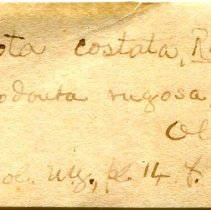 ota costata, R
odonta rugosa
Ol
ol. Wy., pl. 14 f.